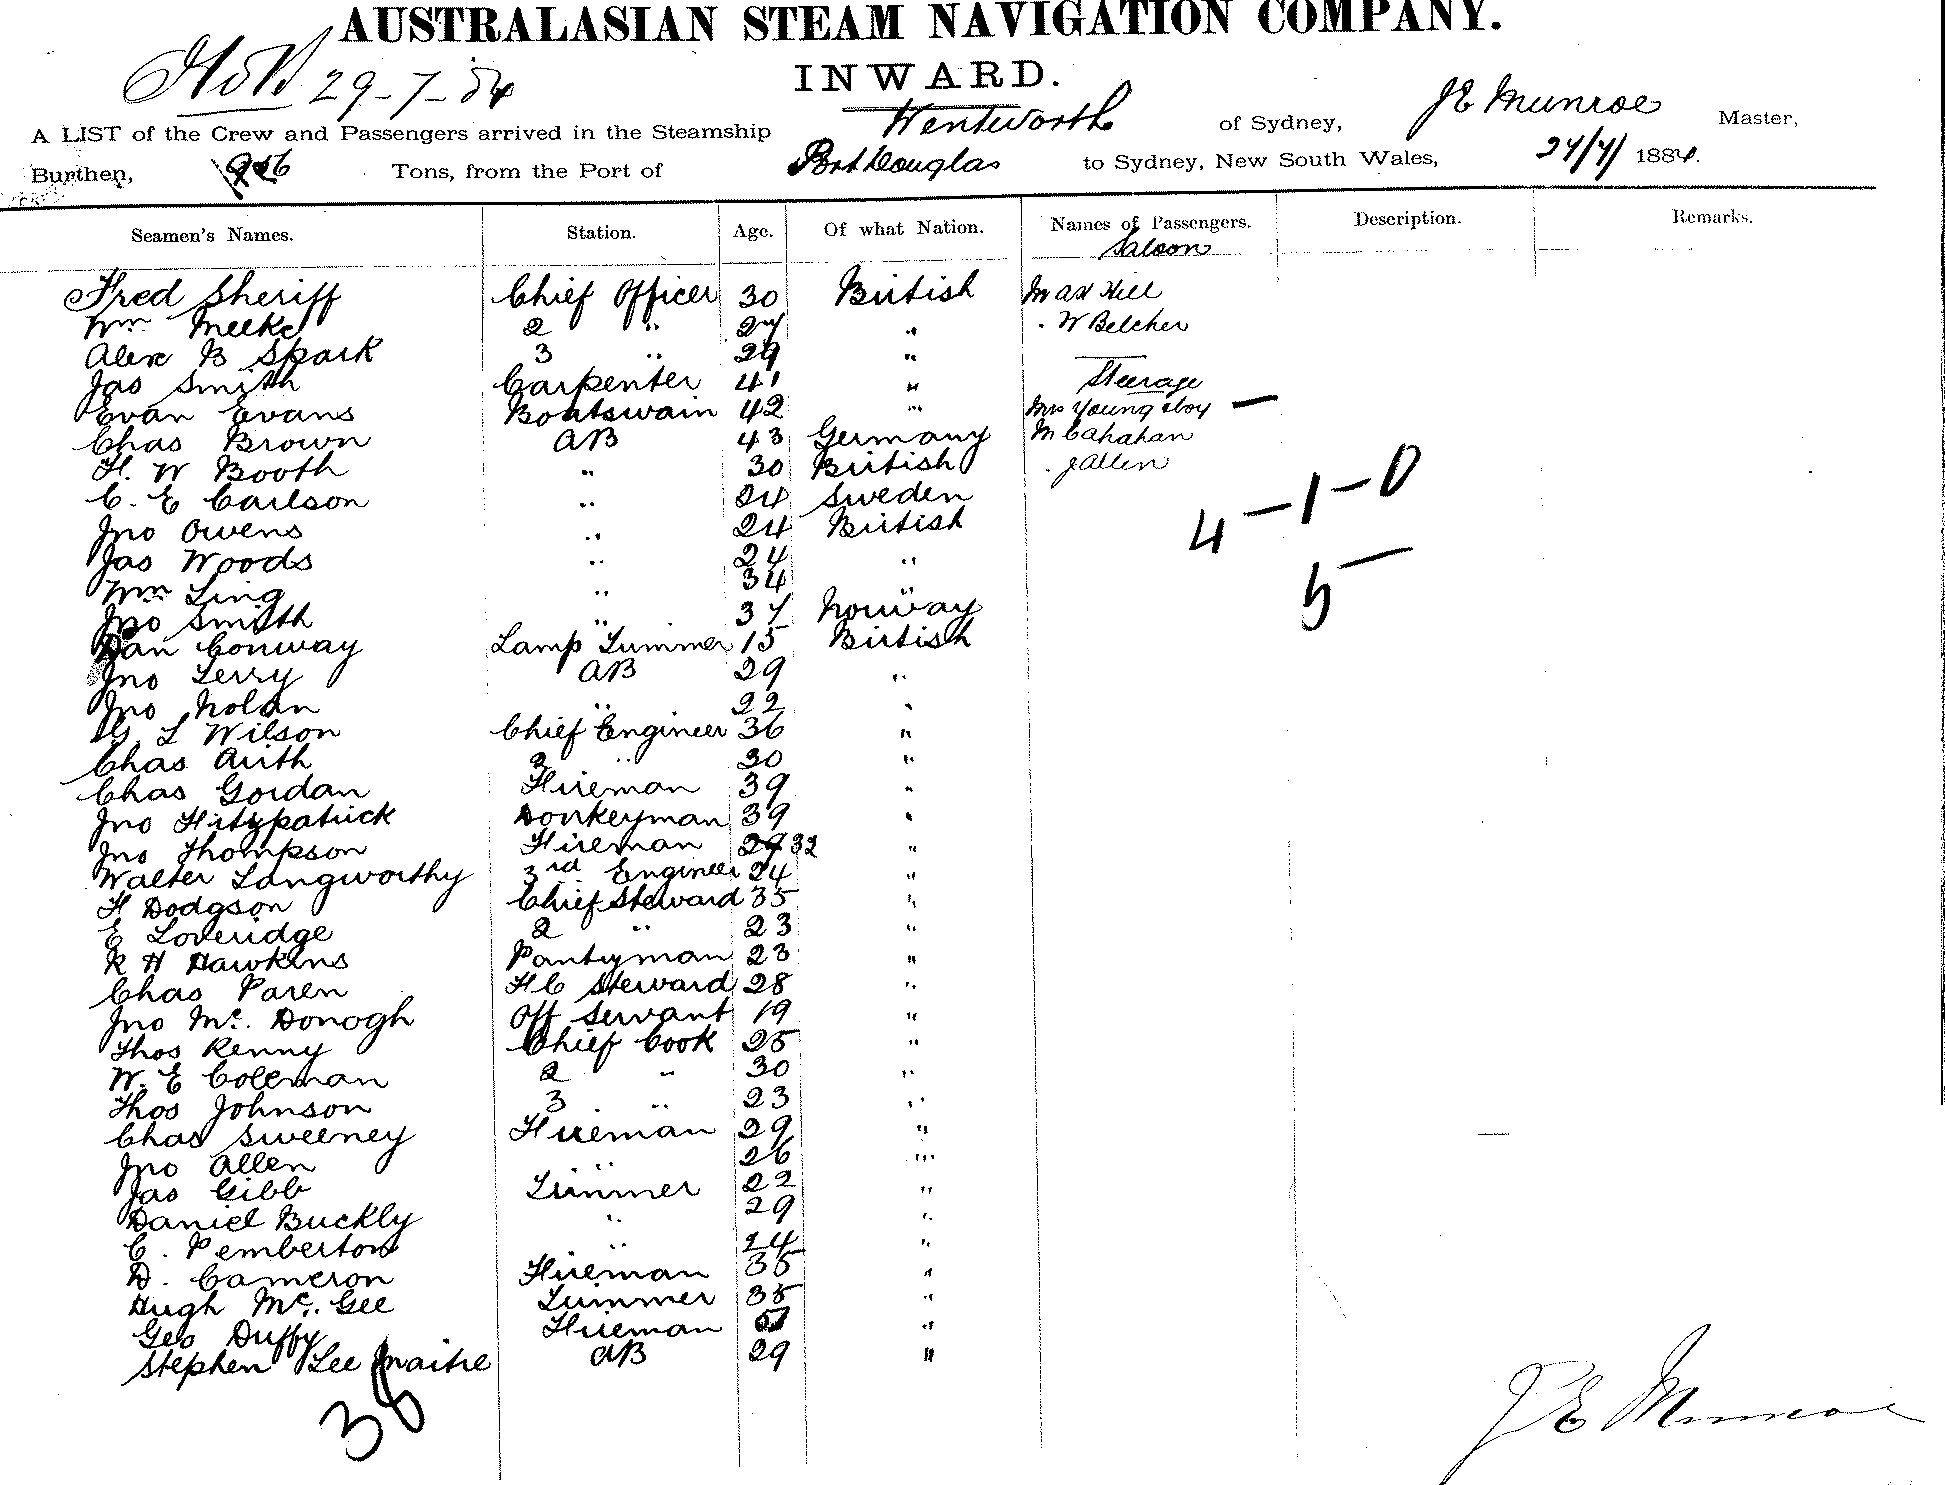 AUSTRALASIAN STEAM NAVIGATION COMPANY.
29-7-84
INWARD.
A LIST of the Crew and Passengers arrived in the Steamship Wentworth of Sydney, J E Munroe Master,
Burthen, Tons, from the Port of Port Douglas to Sydney, New South Wales, 27/7/ 1884.
Seamen's Names. Station. Age. Of what Nation. Names of Passengers. Description. Remarks.
Saloon
Fred Sheriff Chief Officer 30 British Hill
Wm Meeke 2 " 27 " " W Belcher
Alex B Spark 3 " 29 "
Jas Smith Carpenter 41 " Steerage
Evan Evans Boatswain 42 " Mrs Young & boy —
Chas Brown AB 43 Germany M Cahahan
H. W Booth " 30 British " J Allen
C. E Carlson " 24 Sweden
4 – 1 – 0
Jno Owens " 24 British
5
Jas Woods " 24 "
Wm Ling " 34 "
Jno Smith " 37 Norway
Dan Conway Lamp Trimmer 15 British
Jno Terry AB 29 "
Jno Nolan " 22 "
G. L Wilson Chief Engineer 36 "
Chas Airth 2 " 30 "
Chas Gordan Fireman 39 "
Jno Fitzpatrick Donkeyman 39 "
Jno Thompson Fireman 29 32 "
Walter Langworthy 3rd Engineer 24 "
H Dodgson Chief Steward 35 "
E Loveridge 2 " 23 "
R H Hawkins Pantryman 23 "
Chas Paren F C Steward 28 "
Jno Mc. Donogh Off Servant 19 "
Thos Kenny Chief Cook 25 "
W. E Coleman 2 " 30 "
Thos Johnson 3 " 23 "
Chas Sweeney Fireman 29 "
Jno Allen " 26 "
Jas Gibb Trimmer 22 "
Daniel Buckly " 29 "
C. Pemberton " 24 "
D. Cameron Fireman 35 "
Hugh Mc. Gee Trimmer 35 "
Geo Duffy Fireman "
Stephen Lee Maitre AB 29 "
38
J E Munroe